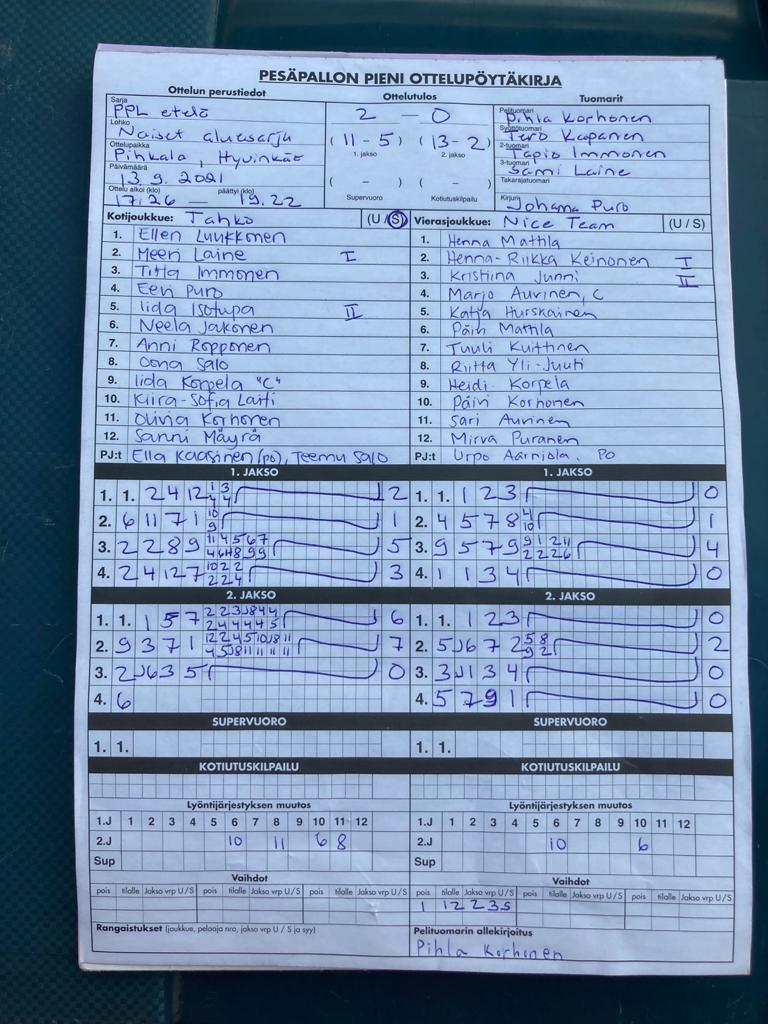 PESÄPALLON PIENI OTTELUPÖYTÄKIRJA
Ottelun perustiedot
Sarja
PPL etelä
Lohko
Naiset aluesarja
Ottelupaikka
Pihkala, Hyvinkää
Päivämäärä
13.9.2021
Ottelu alkoi (klo) päättyi (klo)
17.26 — 19.22
Ottelutulos
2 — 0
(11 - 5) (13 - 2)
1. jakso 2. jakso
( - ) ( - )
Supervuoro Kotiutuskilpailu
Tuomarit
Pelituomari
Pihla Korhonen
Syöttötuomari
Tero Kapanen
2-tuomari
Tapio Immonen
3-tuomari
Sami Laine
Takarajatuomari
Kirjuri
Johanna Puro
Kotijoukkue: Tahko (U / S)
1. Ellen Luukkonen
2. Meeri Laine I
3. Titta Immonen
4. Eeri Puro
5. Iida Isotupa II
6. Neela Jakonen
7. Anni Ropponen
8. Oona Salo
9. Iida Korpela "C"
10. Kiira-Sofia Lahti
11. Olivia Korhonen
12. Sanni Mäyrä
PJ:t Ella Kaasinen (po), Teemu Salo
Vierasjoukkue: Nice Team (U / S)
1. Henna Mattila
2. Henna-Riikka Keinonen I
3. Kristiina Junni II
4. Marjo Auvinen, C
5. Katja Hurskainen
6. Päivi Mattila
7. Tuuli Kuittinen
8. Riitta Yli-Juuti
9. Heidi Korpela
10. Päivi Korhonen
11. Sari Auvinen
12. Mirva Puranen
PJ:t Urpo Aarniola. PO
1. JAKSO
1. 1. 2 4 12 2
2. 6 11 7 1 10 9 1
3. 2 2 8 9 5
4. 2 4 12 7 10 2 2 2 2 4 3
1. JAKSO
1. 1. 1 2 3 0
2. 4 5 7 8 4 10 1
3. 9 5 7 9 4
4. 1 1 3 4 0
2. JAKSO
1. 1. 1 5 7 6
2. 9 3 7 1 7
3. 2 J6 3 5 0
4. 6
2. JAKSO
1. 1. 1 2 3 0
2. 5 J6 7 2 5 8 9 2 2
3. 3 J1 3 4 0
4. 5 7 9 1 0
SUPERVUORO
1. 1.
SUPERVUORO
1. 1.
KOTIUTUSKILPAILU
KOTIUTUSKILPAILU
Lyöntijärjestyksen muutos
1.J 1 2 3 4 5 6 7 8 9 10 11 12
2.J 10 11 6 8
Sup
Lyöntijärjestyksen muutos
1.J 1 2 3 4 5 6 7 8 9 10 11 12
2.J 10 6
Sup
Vaihdot
pois tilalle Jakso vrp U/S pois tilalle Jakso vrp U/S pois tilalle Jakso vrp U/S
Vaihdot
pois tilalle Jakso vrp U/S pois tilalle Jakso vrp U/S pois tilalle Jakso vrp U/S
1 12 2 3 S
Rangaistukset (joukkue, pelaaja nro, jakso vrp U / S ja syy)
Pelituomarin allekirjoitus
Pihla Korhonen